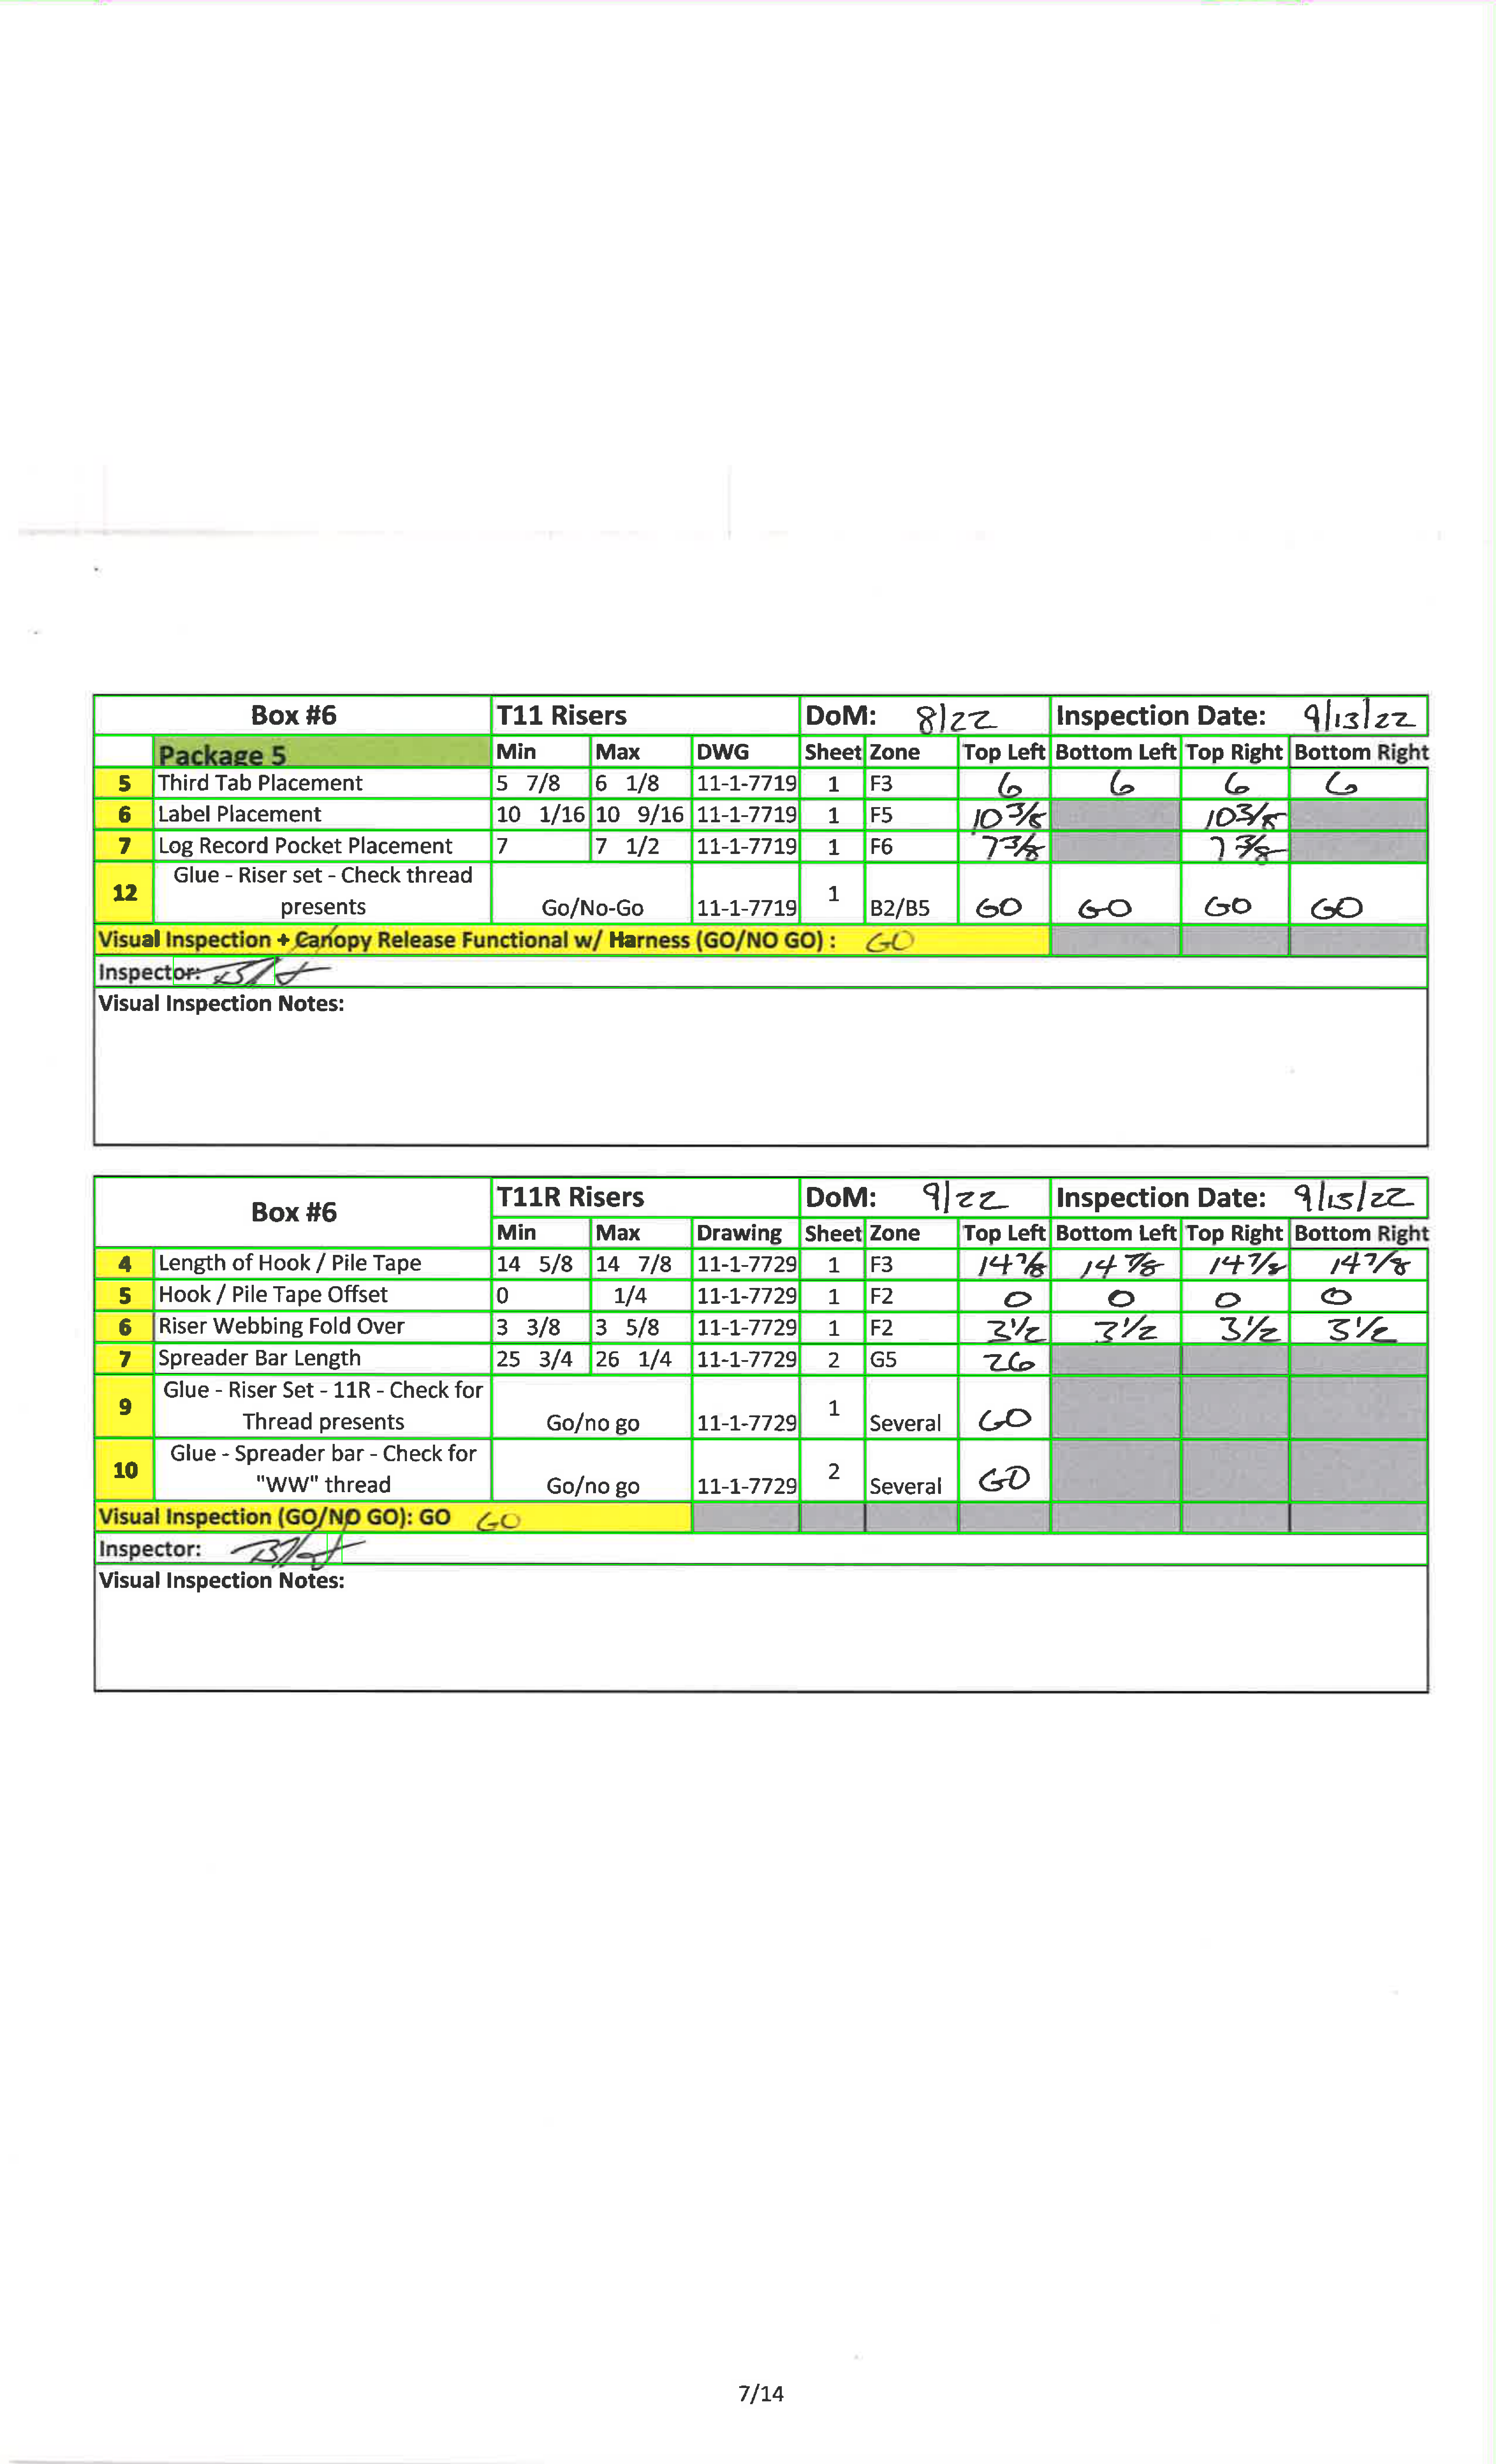 Box #6 T11 Risers DoM: 8/22 Inspection Date: 9/13/22
Package 5 Min Max DWG Sheet Zone Top Left Bottom Left Top Right Bottom Right
5 Third Tab Placement 5 7/8 6 1/8 11-1-7719 1 F3 6 6 6 6
6 Label Placement 10 1/16 10 9/16 11-1-7719 1 F5 10 3/8 10 3/8
7 Log Record Pocket Placement 7 7 1/2 11-1-7719 1 F6 7 3/8 7 3/8
Glue - Riser set - Check thread
12 presents Go/No-Go 11-1-7719 1 B2/B5 GO GO GO GO
Visual Inspection + Canopy Release Functional w/ Harness (GO/NO GO) : GO
Inspector:
Visual Inspection Notes:
Box #6 T11R Risers DoM: 9/22 Inspection Date: 9/13/22
Min Max Drawing Sheet Zone Top Left Bottom Left Top Right Bottom Right
4 Length of Hook / Pile Tape 14 5/8 14 7/8 11-1-7729 1 F3 14 7/8 14 7/8 14 7/8 14 7/8
5 Hook / Pile Tape Offset 0 1/4 11-1-7729 1 F2 0 0 0 0
6 Riser Webbing Fold Over 3 3/8 3 5/8 11-1-7729 1 F2 3 1/2 3 1/2 3 1/2 3 1/2
7 Spreader Bar Length 25 3/4 26 1/4 11-1-7729 2 G5 26
Glue - Riser Set - 11R - Check for
9 Thread presents Go/no go 11-1-7729 1 Several GO
Glue - Spreader bar - Check for
10 "WW" thread Go/no go 11-1-7729 2 Several GO
Visual Inspection (GO/NO GO): GO GO
Inspector:
Visual Inspection Notes:
7/14